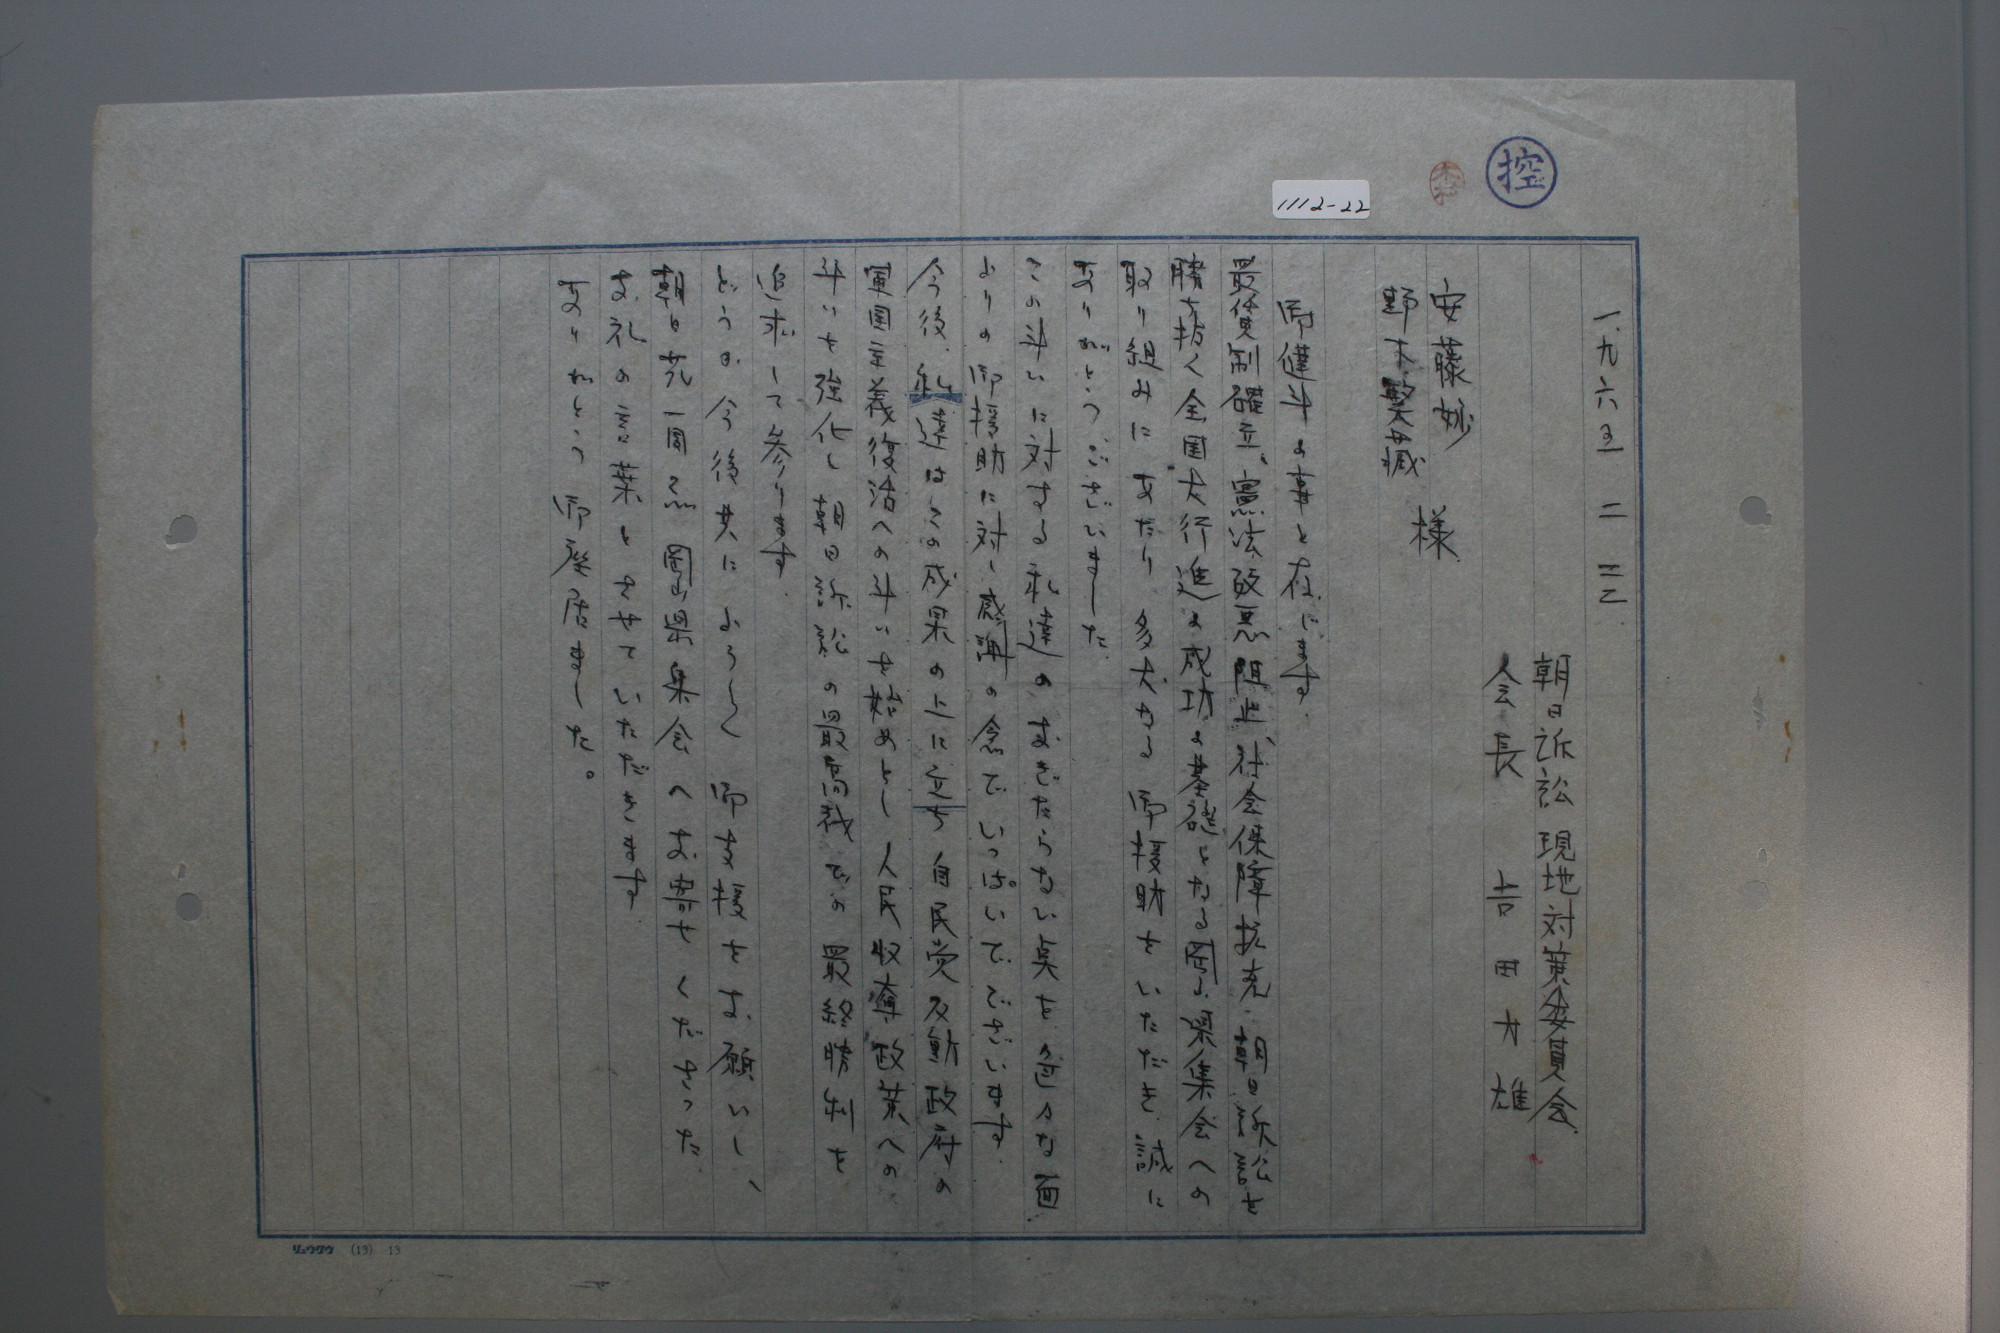 控
1112-22
一九六五 二 二三
朝日訴訟現地対策委員会
会長 吉田力雄
安藤妙
野木繁蔵
様
御健斗の事と存じます.
最賃制確立、憲法改悪阻止、社会保障拡充、朝日訴訟を
勝ち抜く全国大行進の成功の基礎となる岡山県集会への
取り組みにあたり多大なる御援助をいただき、誠に
ありがとうございました.
この斗いに対する私達のまだたらない点を色々な面
よりの御援助に対し感謝の念でいっぱいでございます.
今後、私達はこの成果の上に立ち自民党反動政府の
軍国主義復活への斗いを始めとし人民収奪政策への
斗いを強化し朝日訴訟の最高裁での最終勝利を
追求して参ります.
どうか今後共によろしく御支援をお願いし、
朝日茂一周忌岡山県集会へお寄せくださった
お礼の言葉とさせていただきます.
ありがとう御座居ました。
リュウグウ (13) 13